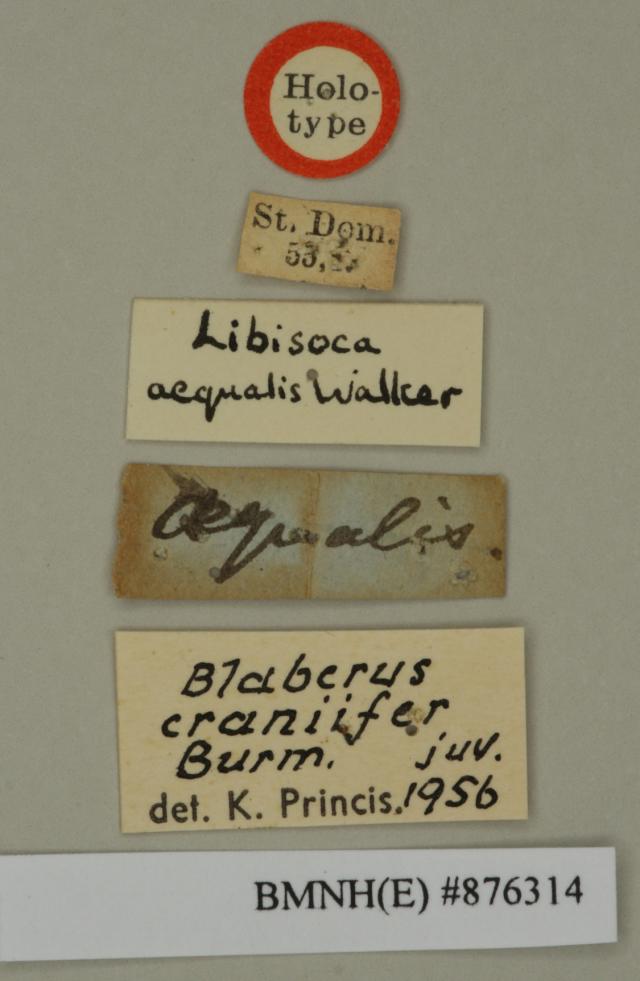 Holo-
type
St. Dom.
53,
Libisoca
aequalis Walker
aequalis.
Blaberus
craniifer
Burm. juv.
det. K. Princis. 1956
BMNH(E) #876314